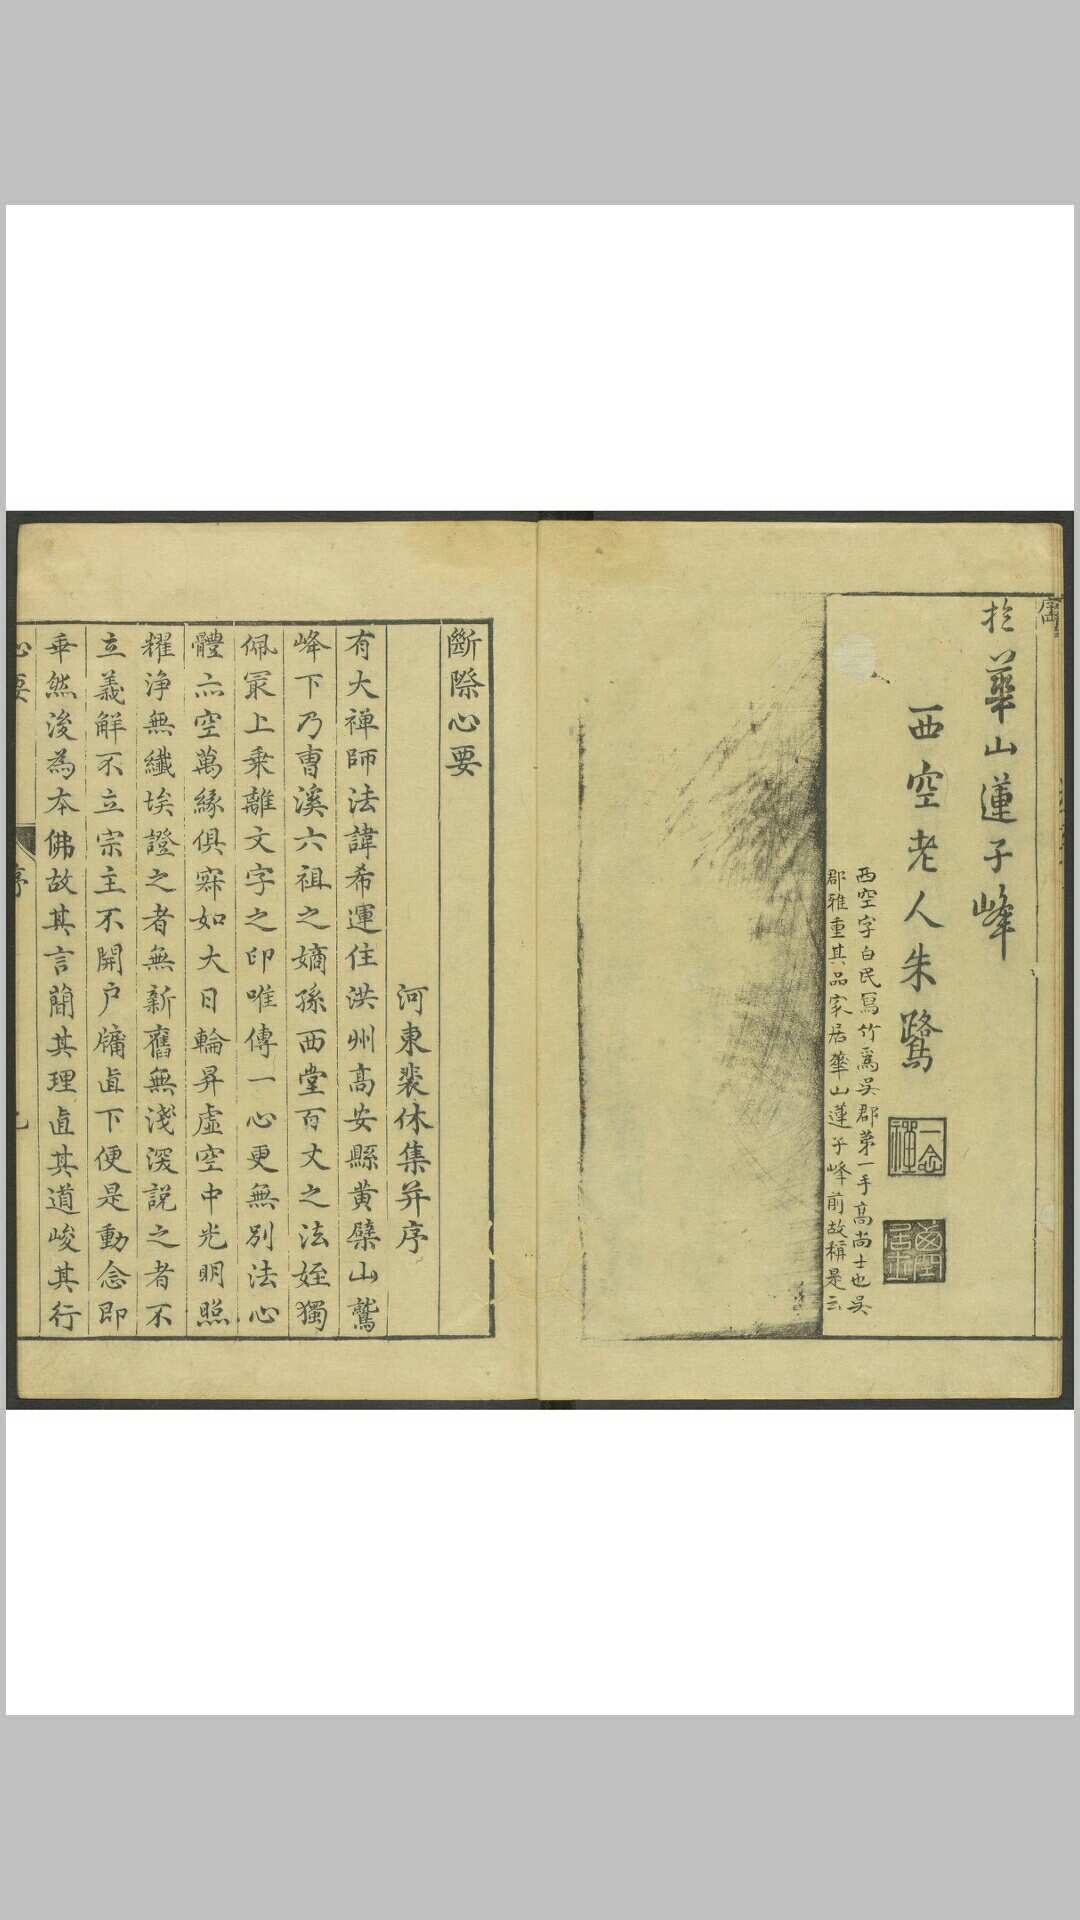 於華山蓮子峰
西空老人朱鷺
西空字白民寫竹爲吳郡第一手高尚士也吳
郡雅重其品家居華山蓮子峰前故稱是云
斷際心要
河東裴休集并序
有大禅師法諱希運住洪州高安縣黄檗山鷲
峰下乃曺溪六祖之嫡孫西堂百丈之法姪獨
佩冣上乗離文字之印唯傳一心更無別法心
體亦空萬緣俱寂如大日輪昇虛空中光明照
耀淨無纖埃證之者無新舊無淺深說之者不
立義解不立宗主不開户牖直下便是動念即
乖然後為本佛故其言簡其理直其道峻其行
心要
序